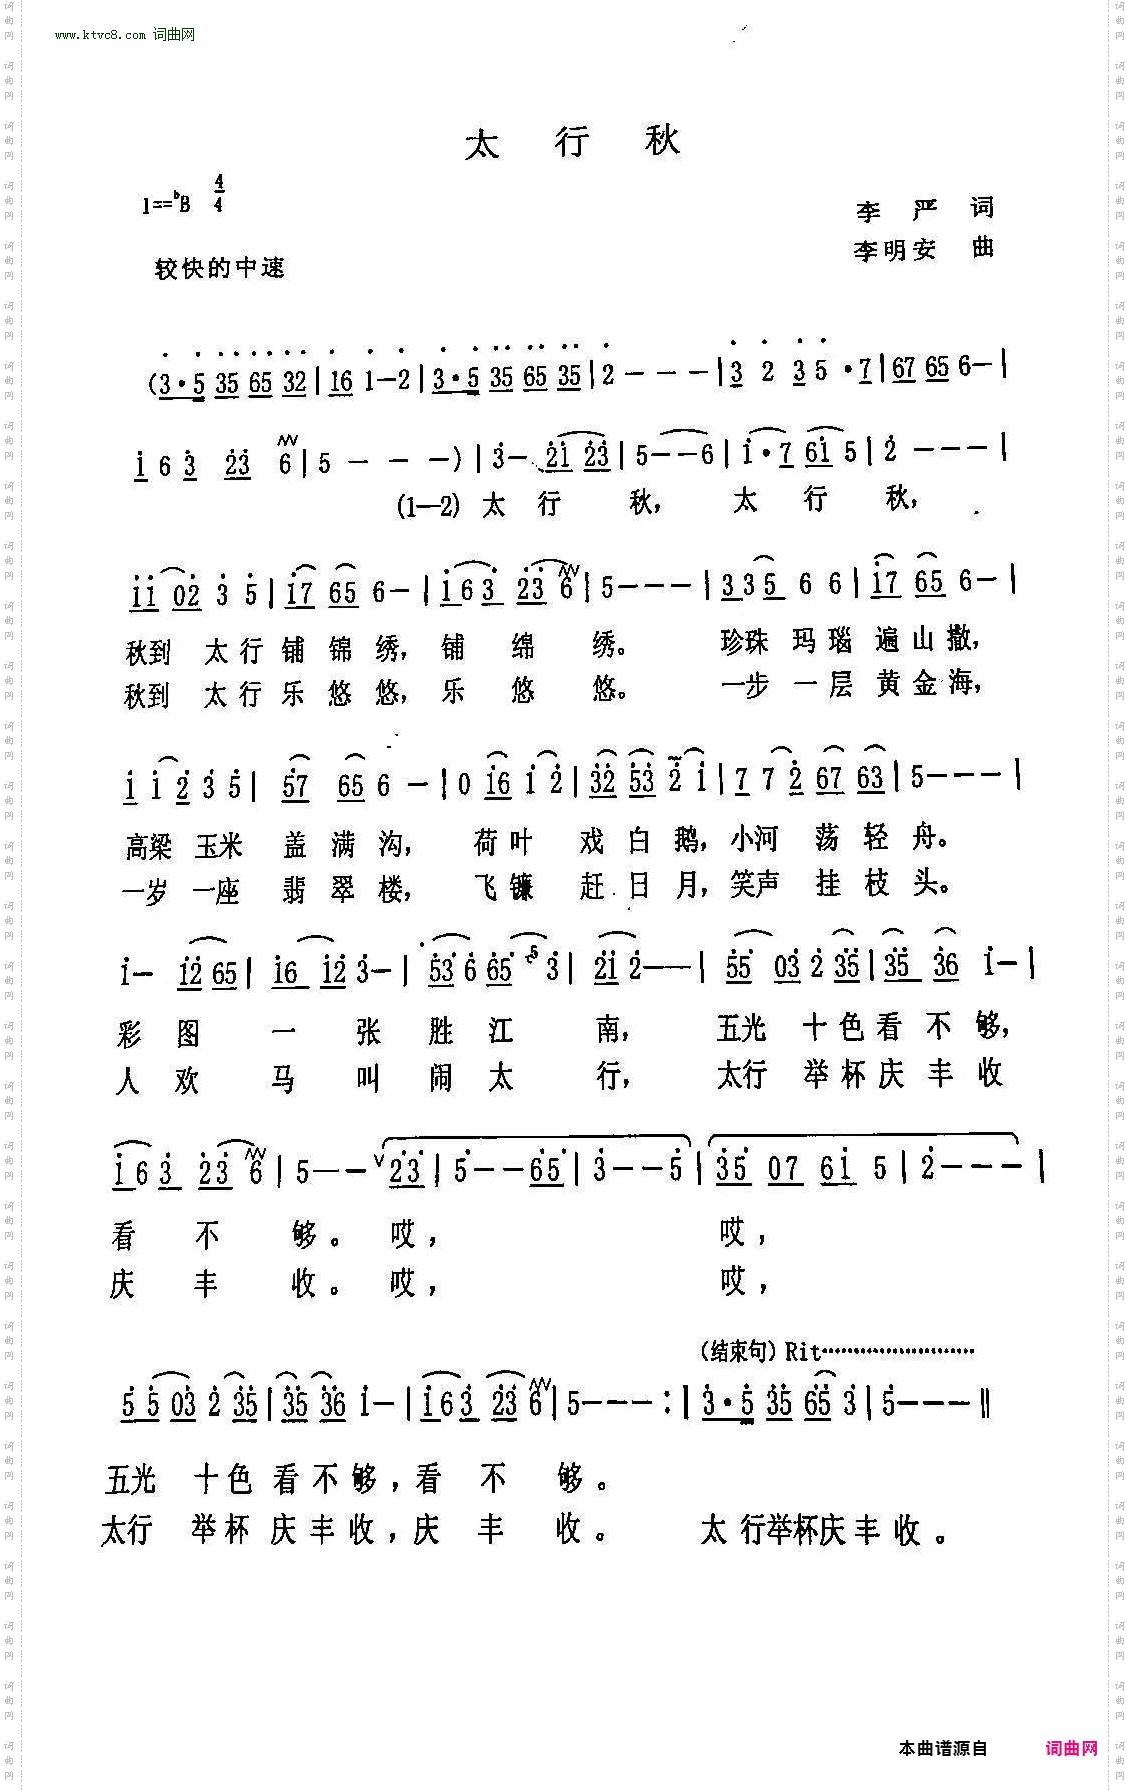 www.ktvc8.com 词曲网
太 行 秋
1=♭B 4/4
李 严 词
李明安 曲
较快的中速
(3·5 35 65 32|16 1-2|3·5 35 65 35|2---|3 2 3 5·7|67 65 6-|
1 6 3 23 6|5---)|3-21 23|5--6|1·7 61 5|2---|
(1—2) 太 行 秋, 太 行 秋,
11 02 3 5|17 65 6-|163 23 6|5---|335 6 6|17 65 6-|
秋到 太行铺锦绣, 铺 绵 绣。 珍珠 玛瑙遍山撒,
秋到 太行乐悠悠, 乐 悠 悠。 一步 一层黄金海,
1 12 35|57 65 6-|0 16 1 2|32 53 2 1|7 72 67 63|5---|
高梁 玉米 盖满沟, 荷叶 戏白鹅, 小河 荡轻舟。
一岁 一座 翡翠楼, 飞镰 赶日月, 笑声 挂枝头。
1- 12 65|16 12 3-|53 6 65 5 3|21 2--|55 03 2 35|35 36 1-|
彩 图 一 张 胜 江 南, 五光 十色看不够,
人 欢 马 叫 闹 太 行, 太行 举杯庆丰收
163 23 6|5-- ∨23|5--65|3--5|35 07 61 5|2---|
看 不 够。 哎, 哎,
庆 丰 收。 哎, 哎,
(结束句) Rit
5 5 03 2 35|35 36 1-|163 23 6|5---:|3·5 35 65 3|5---‖
五光 十色看不够, 看 不 够。
太行 举杯庆丰收, 庆 丰 收。 太行举杯庆丰收。
本曲谱源自 词曲网